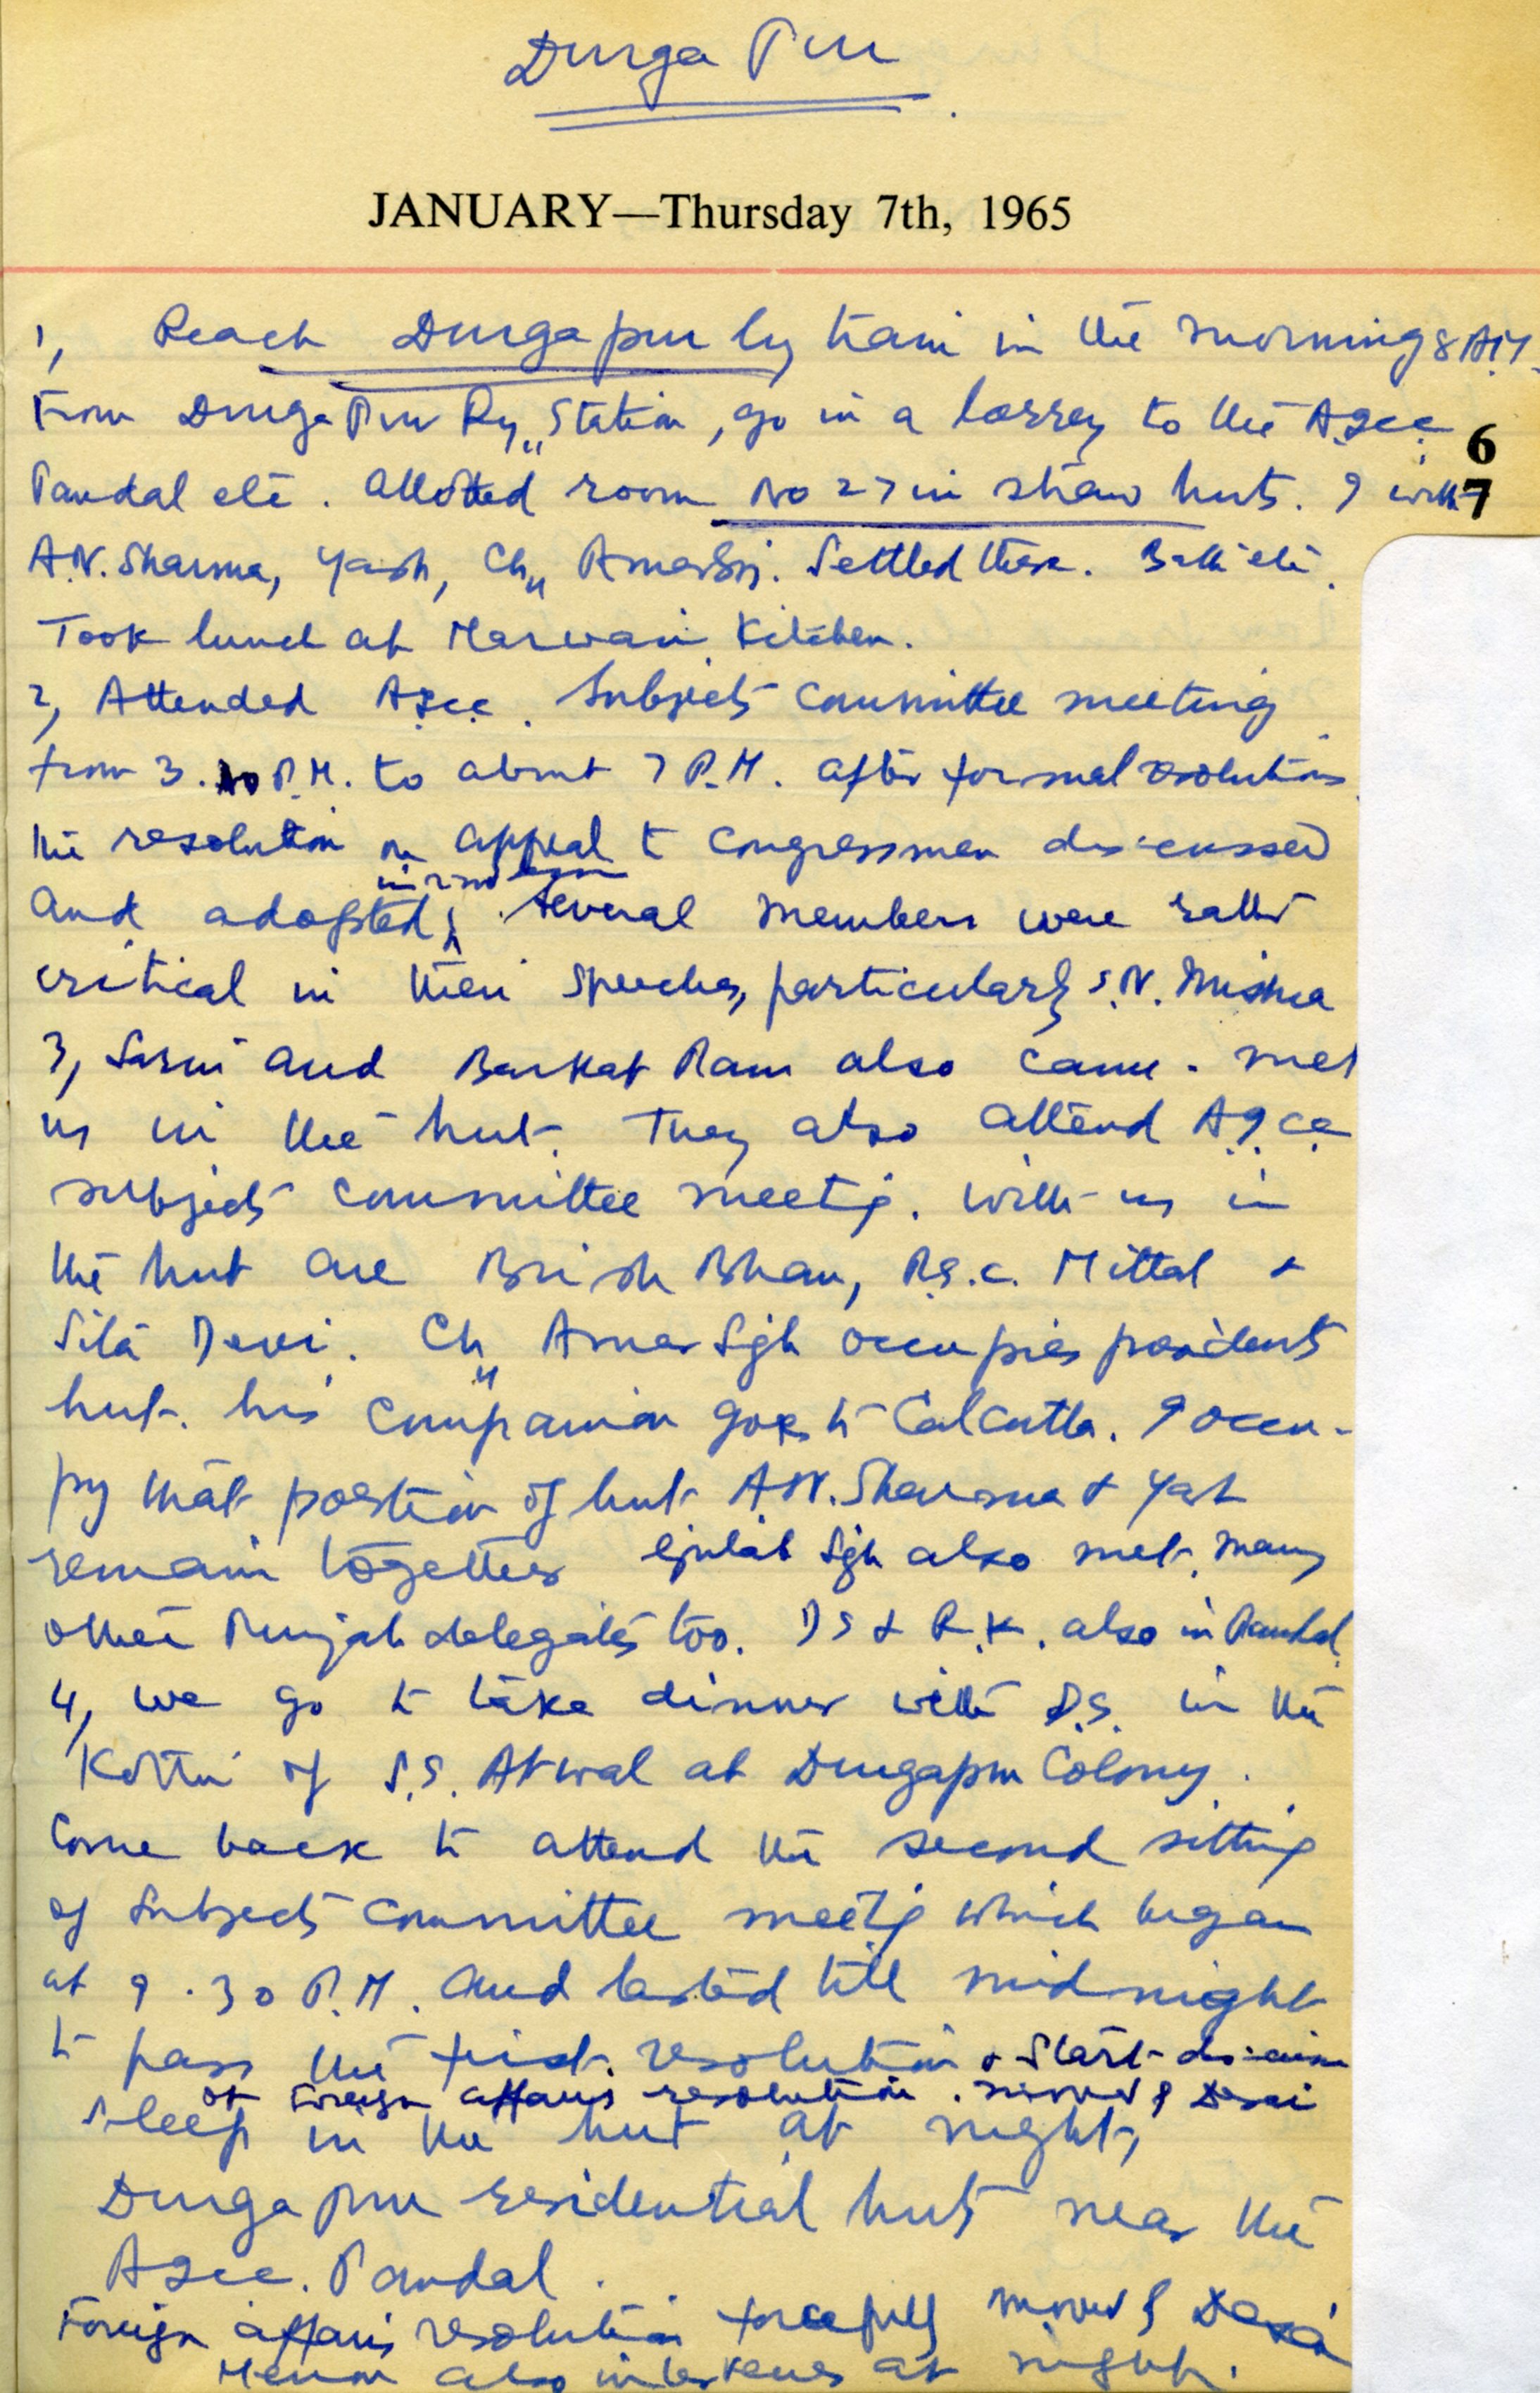 Durga Pur
JANUARY—Thursday 7th, 1965
1, Reach Durgapur by train in the morning 8 A.M.
From Durga Pur Ry,, Station, go in a lorrey to the A.I.C.C. 6
Pandal etc. Allotted room No 27 in straw huts. I with 7
A.N. Sharma, Yash, Ch,, Amar Sgh. Settled there. Bath etc.
Took lunch at Marwari Kitchen.
2, Attended A.I.C.C. Subjects Committee meeting
from 3. P.M. to about 7 P.M. After formal resolutions
the resolution on appeal to Congressmen discussed
in 2nd session
and adopted, Several members were rather
critical in their speeches, particularly S.N. Mishra
3, and Barkat Ram also came. met
us in the hut. They also attend A.I.C.C
subjects committee meetig. With us in
the hut are Brish Bhan, Mittal &
Sita Devi. Ch,, Amar Sgh occupies presidents
hut. his companion goes to Calcutta. I occu-
py that portion of hut A.N. Sharma & Yash
remain together Gulab Sgh also met. many
other Punjab delegates too. D S & R.K. also in Pandal.
4, we go to take dinner with D.S. in the
Kothi of S.S. Atwal at Durgapur Colony.
Come back to attend the second sitting
of Subjects Committee meetig which began
at 9.30 P.M. and lasted till mid night
to pass the first resolution & start discussion
of Foreign affairs resolution. moved by Desai
sleep in the hut at night,
Durga pur residential huts near the
A.I.C.C. Pandal.
Foreign affairs resolution forcefully moved by Desai
Menon also intervenes at night.